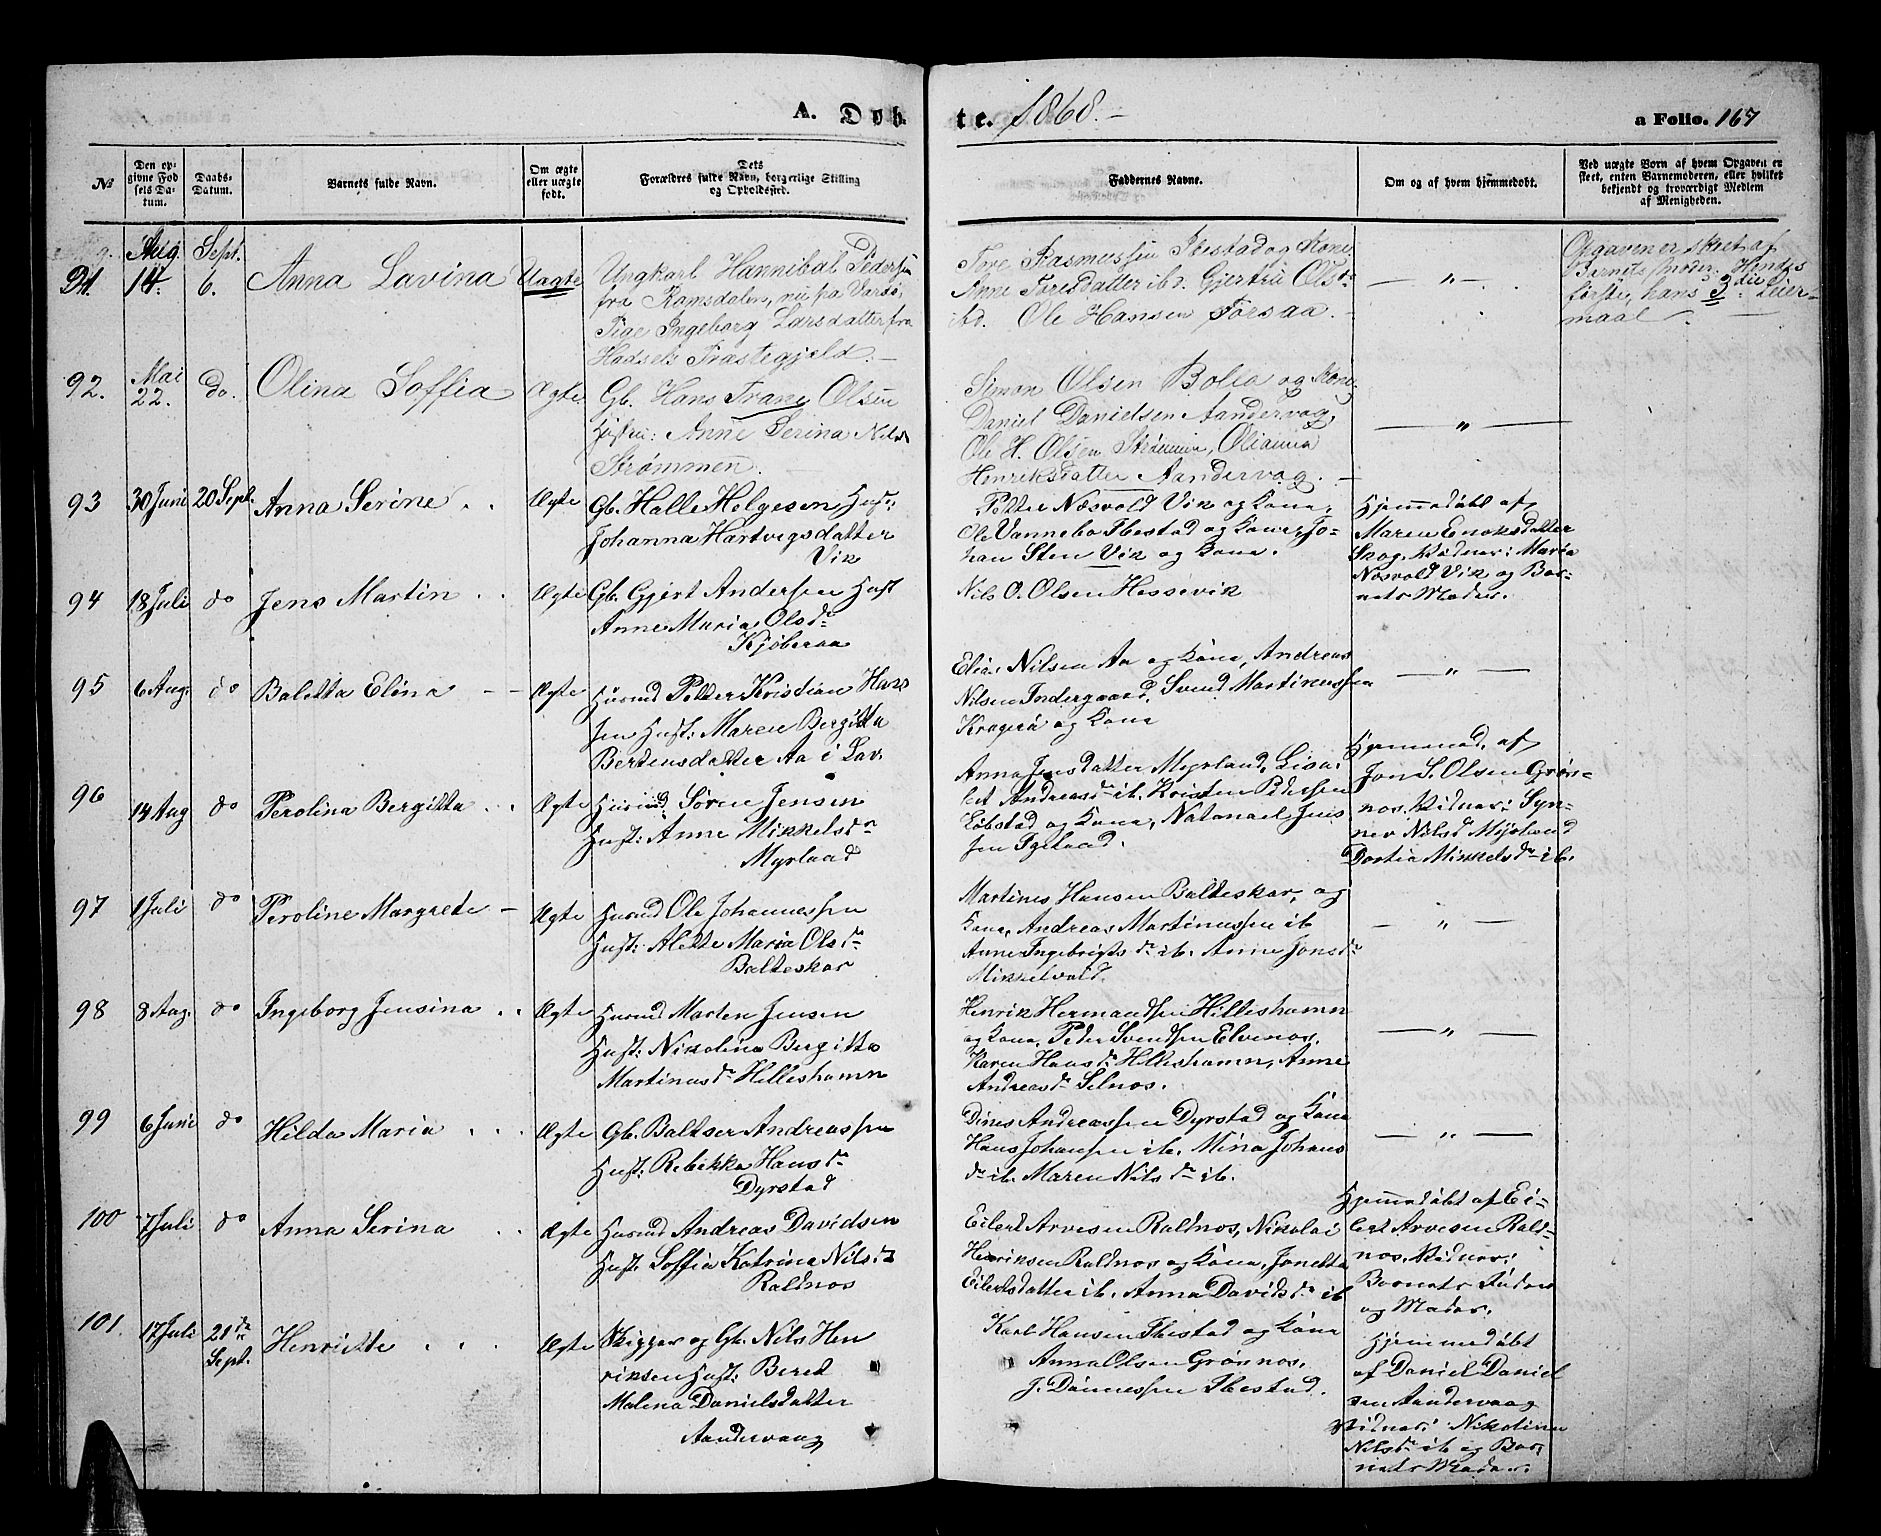 A. Døb
te. 1868.
a Folio. 167
№
Den opgivne Fødsels Datum.
Daabs-Datum.
Barnets fulde Navn.
Om ægte eller uægte født.
Dets Forældres fulde Navn, borgerlige Stilling og Opholdssted.
Faddernes Navne.
Om og af hvem hjemmedøbt.
Ved uægte Born af hvem Opgaven er skeet, enten Barnemoderen, eller hvilket bekjendt og troværdigt Medlem af Menigheden.
91. Aug. 14. Sept. 6. Anna Lavina Uægte
Ungkarl Hannibal Peders̄en
fra Ramsdalen, nu på
Pige Ingeborg Larsdatter fra
Hadsels Præstegjeld. —
Tore Rasmussen Ibestad og Kone,
Anne Toresdatter ibd. Gjertru Olsdr
ibd. Ole Hansen Forsaa. —
— " —
Opgaven er skeet af
Barnets Moder. Hendes
første, hans 3die Leier-
maal. —
92. Mai 22. do. Olina Soffia Ægte
Gb. Hans Trane Olsen
Hustru: Anne Serina Nilsdr
Strømmen.
Simon Olsen Bolla og Kone,
Daniel Danielsen Aandervag,
Ole H. Olsen Strømmen, Olianna
Henriksdatter Aandervag. —
— " —
93 30 Juni 20 Sept. Anna Serine . . Ægte
Gb. Halle Helgesen Hust:
Johanna Hartvigsdatter
Vik
Petter Næsvold Vik og Kone,
Ole Vannebo Ibestad og Kone, Jo-
han Sten Vik og Kone.
Hjemmedöbt af
Maren Enoksdatter
Skog. Vidner: Maria
Næsvold Vik og Bar-
nets Moder.
94 18 Juli do Jens Martin . . Ægte
Gb. Gjert Andersen Hust
Anne Maria Olsdr
Kjøberaa
Nils O. Olsen Hessevik
95 6 Aug. do Baletta Elina - - Ægte
Husmd Petter Kristian Han-
sen Hust: Maren Bergitta
Bertensdatter Aa i Lav.
Elias Nilsen Aa og Kone, Andreas
Nilsen Indergaard, Svend Martinussen
Kragerö og Kone
— " —
96 14 Aug do Perolina Bergitta . . Ægte
Husmd Sören Jensen
Hust: Anne Mikkelsdr
Myrland
Anna Jensdatter Myrland, Lisa-
bet Andreasdr ib. Kristen Pedersen
Löbstad og Kone, Natanael Jens
sen Igeland.
Hjemmed. af
Jon S. Olsen Grøn-
nos. Vidner: Syn-
nev Nilsdr Myrland
Dortia Mikkelsdr ib.
97 1 Juli do Peroline Margrete — Ægte
Husmd Ole Johannessen
Hust: Alette Maria Olsdr
Balteskar
Martines Hansen Balteskar, og
Kone, Andreas Martinussen ib
Anne Ingebrigtsdr ib. Anne Jonsdr
Mikkelvold.
— " —
98 8 Aug. do Ingeborg Jensina . . Ægte
Husmd Morten Jensen
Hust: Nikolina Bergitta
Martinusdr Hilleshamn
Henrik Hermandsen Hilleshamn
og Kone, Peder Svendsen Elvenos,
Karen Hansdr Hilleshamn, Anne
Andreasdr Selnos.
— " —
99 6 Juni do Hilda Maria . . . Ægte
Gb. Baltser Andreassen
Hust: Rebekka Hansdr
Dyrstad
Dines Andreassen Dyrstad og Kone
Hans Johansen ib. Mina Johans
dr ib. Maren Nilsdr ib.
— " —
100 7 Juli do Anna Serina . . Ægte
Husmd Andreas Davidsen
Hust. Soffia Katrina Nilsdr
Roldnos
Eilert Arvesen Roldnos, Nikolai
Henriksen Roldnos og Kone, Jonetta
Eilertsdatter ib. Anna Davidsdr ib
Hjemmedöbt af Ei-
lert Arvesen Rold-
nos. Vidner:
Barnets Fader
og Moder.
101. 17 Juli 21de Sept. Henritte . . . Ægte
Skipper og Gb. Nils Hen
riksen Hust: Beret
Malena Danielsdatter
Aandervaag
Karl Hansen Ibestad og Kone
Anna Olsen Grönnos.
J. Dönnessen Ibestad.
Hjemmedöbt
af Daniel Daniel
sen Aandervaag
Vidner: Nikolina
Nilsdr ib og Bar-
nets Moder.